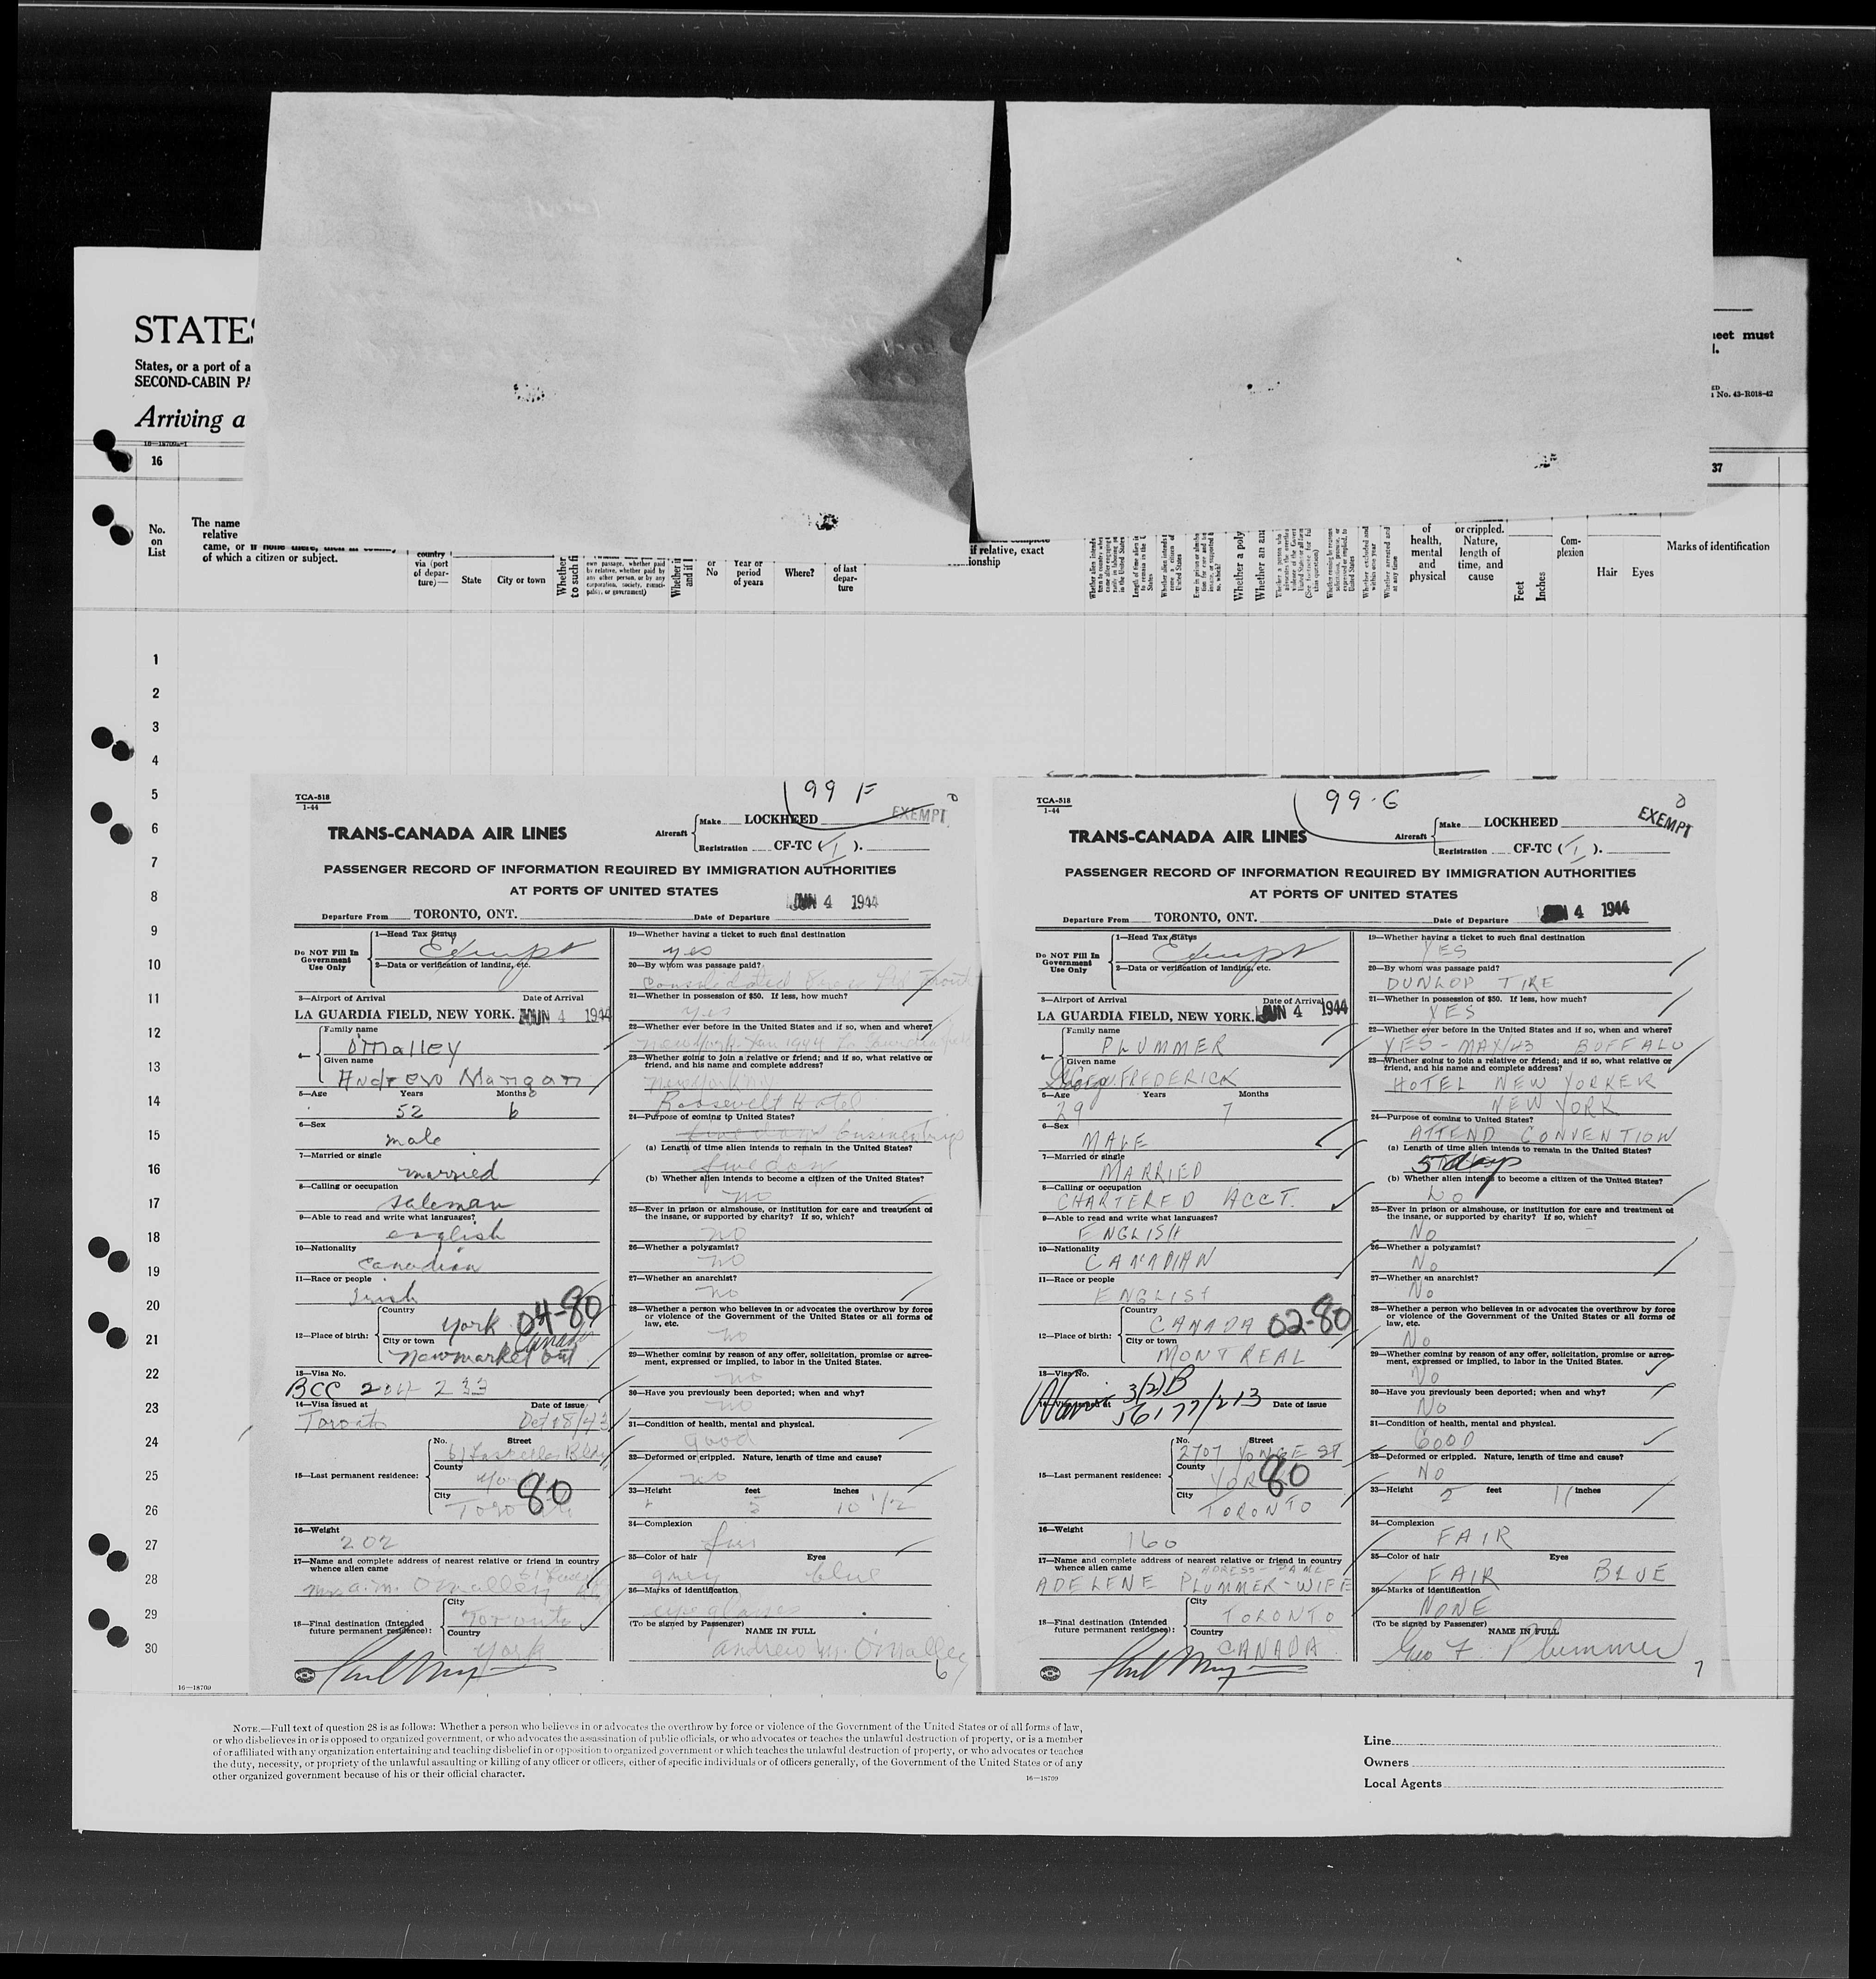 STATES
States, or a port of a
SECOND-CABIN PA
Arriving a
eet must
No. 43-R018-42
16
37
No.
on
List
The name
relative
came, or if none there, then in country
of which a citizen or subject.
country
via (port
of depar-
ture)—
State
City or town
Whether
to such fi
own passage, whether paid
by relative, whether paid by
any other person, or by any
corporation, society, munici-
pality, or government)
Whether i
and if l
or
No
Year or
period
of years
Where?
of last
depar-
ture
if relative, exact
ionship
Whether a poly
Whether an an
of
health,
mental
and
physical
or crippled.
Nature,
length of
time, and
cause
Feet
Inches
Com-
plexion
Hair
Eyes
Marks of identification
1
2
3
4
5
6
7
8
9
10
11
12
13
14
15
16
17
18
19
20
21
22
23
24
25
26
27
28
29
30
16—18709
TCA-518
1-44
99 F
EXEMPT
TRANS-CANADA AIR LINES
Aircraft
Make LOCKHEED
Registration CF-TC ( I ).
PASSENGER RECORD OF INFORMATION REQUIRED BY IMMIGRATION AUTHORITIES
AT PORTS OF UNITED STATES
JUN 4 1944
Departure From TORONTO, ONT. Date of Departure
Do NOT Fill In
Government
Use Only
1—Head Tax Status
Exempt
2—Data or verification of landing, etc.
3—Airport of Arrival Date of Arrival
LA GUARDIA FIELD, NEW YORK. JUN 4 1944
4—
Family name
O'Malley
Given name
Andrew Mangan
5—Age Years Months
52 6
6—Sex
male
7—Married or single
married
8—Calling or occupation
saleman
9—Able to read and write what languages?
english
10—Nationality
Canadian
11—Race or people
Irish
12—Place of birth:
Country
York 04-80
Canada
City or town
Newmarket Ont
13—Visa No.
BCC 204 233
14—Visa issued at Date of issue
Toronto Oct 18/43
15—Last permanent residence:
No. Street
61 Lascelles Blvd
County
York
80
City
Toronto
16—Weight
202
17—Name and complete address of nearest relative or friend in country
whence alien came
Mrs a. m. O'Malley
18—Final destination (Intended
future permanent residence):
City
Toronto
Country
York
19—Whether having a ticket to such final destination
yes
20—By whom was passage paid?
Consolidated
21—Whether in possession of $50. If less, how much?
yes
22—Whether ever before in the United States and if so, when and where?
New York. Jan 1944
23—Whether going to join a relative or friend; and if so, what relative or
friend, and his name and complete address?
New York
Roosevelt Hotel
24—Purpose of coming to United States?
five days business trip
(a) Length of time alien intends to remain in the United States?
five days
(b) Whether alien intends to become a citizen of the United States?
no
25—Ever in prison or almshouse, or institution for care and treatment of
the insane, or supported by charity? If so, which?
no
26—Whether a polygamist?
no
27—Whether an anarchist?
no
28—Whether a person who believes in or advocates the overthrow by force
or violence of the Government of the United States or all forms of
law, etc.
no
29—Whether coming by reason of any offer, solicitation, promise or agree-
ment, expressed or implied, to labor in the United States.
no
30—Have you previously been deported; when and why?
no
31—Condition of health, mental and physical.
good
32—Deformed or crippled. Nature, length of time and cause?
no
33—Height feet inches
5 10 1/2
34—Complexion
fair
35—Color of hair Eyes
grey blue
36—Marks of identification
eye glasses
(To be signed by Passenger)
NAME IN FULL
Andrew M. O'Malley
6
TCA-518
1-44
99-G
EXEMPT
TRANS-CANADA AIR LINES
Aircraft
Make LOCKHEED
Registration CF-TC ( I ).
PASSENGER RECORD OF INFORMATION REQUIRED BY IMMIGRATION AUTHORITIES
AT PORTS OF UNITED STATES
JUN 4 1944
Departure From TORONTO, ONT. Date of Departure
Do NOT Fill In
Government
Use Only
1—Head Tax Status
Exempt
2—Data or verification of landing, etc.
3—Airport of Arrival Date of Arrival
LA GUARDIA FIELD, NEW YORK. JUN 4 1944
4—
Family name
PLUMMER
Given name
George FREDERICK
5—Age Years Months
29 7
6—Sex
MALE
7—Married or single
MARRIED
8—Calling or occupation
CHARTERED ACCT.
9—Able to read and write what languages?
ENGLISH
10—Nationality
CANADIAN
11—Race or people
ENGLISH
12—Place of birth:
Country
CANADA 02-80
City or town
MONTREAL
13—Visa No.
3(2)B
14—Visa issued at Date of issue
56177/213
15—Last permanent residence:
No. Street
2707 YONGE ST
County
YORK
80
City
TORONTO
16—Weight
160
17—Name and complete address of nearest relative or friend in country
whence alien came
ADRESS - SAME
ADELENE PLUMMER - WIFE
18—Final destination (Intended
future permanent residence):
City
TORONTO
Country
CANADA
19—Whether having a ticket to such final destination
YES
20—By whom was passage paid?
DUNLOP TIRE
21—Whether in possession of $50. If less, how much?
YES
22—Whether ever before in the United States and if so, when and where?
YES - MAY/43 BUFFALO
23—Whether going to join a relative or friend; and if so, what relative or
friend, and his name and complete address?
HOTEL NEW YORKER
NEW YORK
24—Purpose of coming to United States?
ATTEND CONVENTION
(a) Length of time alien intends to remain in the United States?
5 days
(b) Whether alien intends to become a citizen of the United States?
NO
25—Ever in prison or almshouse, or institution for care and treatment of
the insane, or supported by charity? If so, which?
No
26—Whether a polygamist?
No
27—Whether an anarchist?
No
28—Whether a person who believes in or advocates the overthrow by force
or violence of the Government of the United States or all forms of
law, etc.
No
29—Whether coming by reason of any offer, solicitation, promise or agree-
ment, expressed or implied, to labor in the United States.
No
30—Have you previously been deported; when and why?
No
31—Condition of health, mental and physical.
GOOD
32—Deformed or crippled. Nature, length of time and cause?
No
33—Height feet inches
5 11
34—Complexion
FAIR
35—Color of hair Eyes
FAIR BLUE
36—Marks of identification
NONE
(To be signed by Passenger)
NAME IN FULL
Geo F. Plummer
7
NOTE.—Full text of question 28 is as follows: Whether a person who believes in or advocates the overthrow by force or violence of the Government of the United States or of all forms of law,
or who disbelieves in or is opposed to organized government, or who advocates the assassination of public officials, or who advocates or teaches the unlawful destruction of property, or is a member
of or affiliated with any organization entertaining and teaching disbelief in or opposition to organized government or which teaches the unlawful destruction of property, or who advocates or teaches
the duty, necessity, or propriety of the unlawful assaulting or killing of any officer or officers, either of specific individuals or of officers generally, of the Government of the United States or of any
other organized government because of his or their official character.
16—18709
Line
Owners
Local Agents